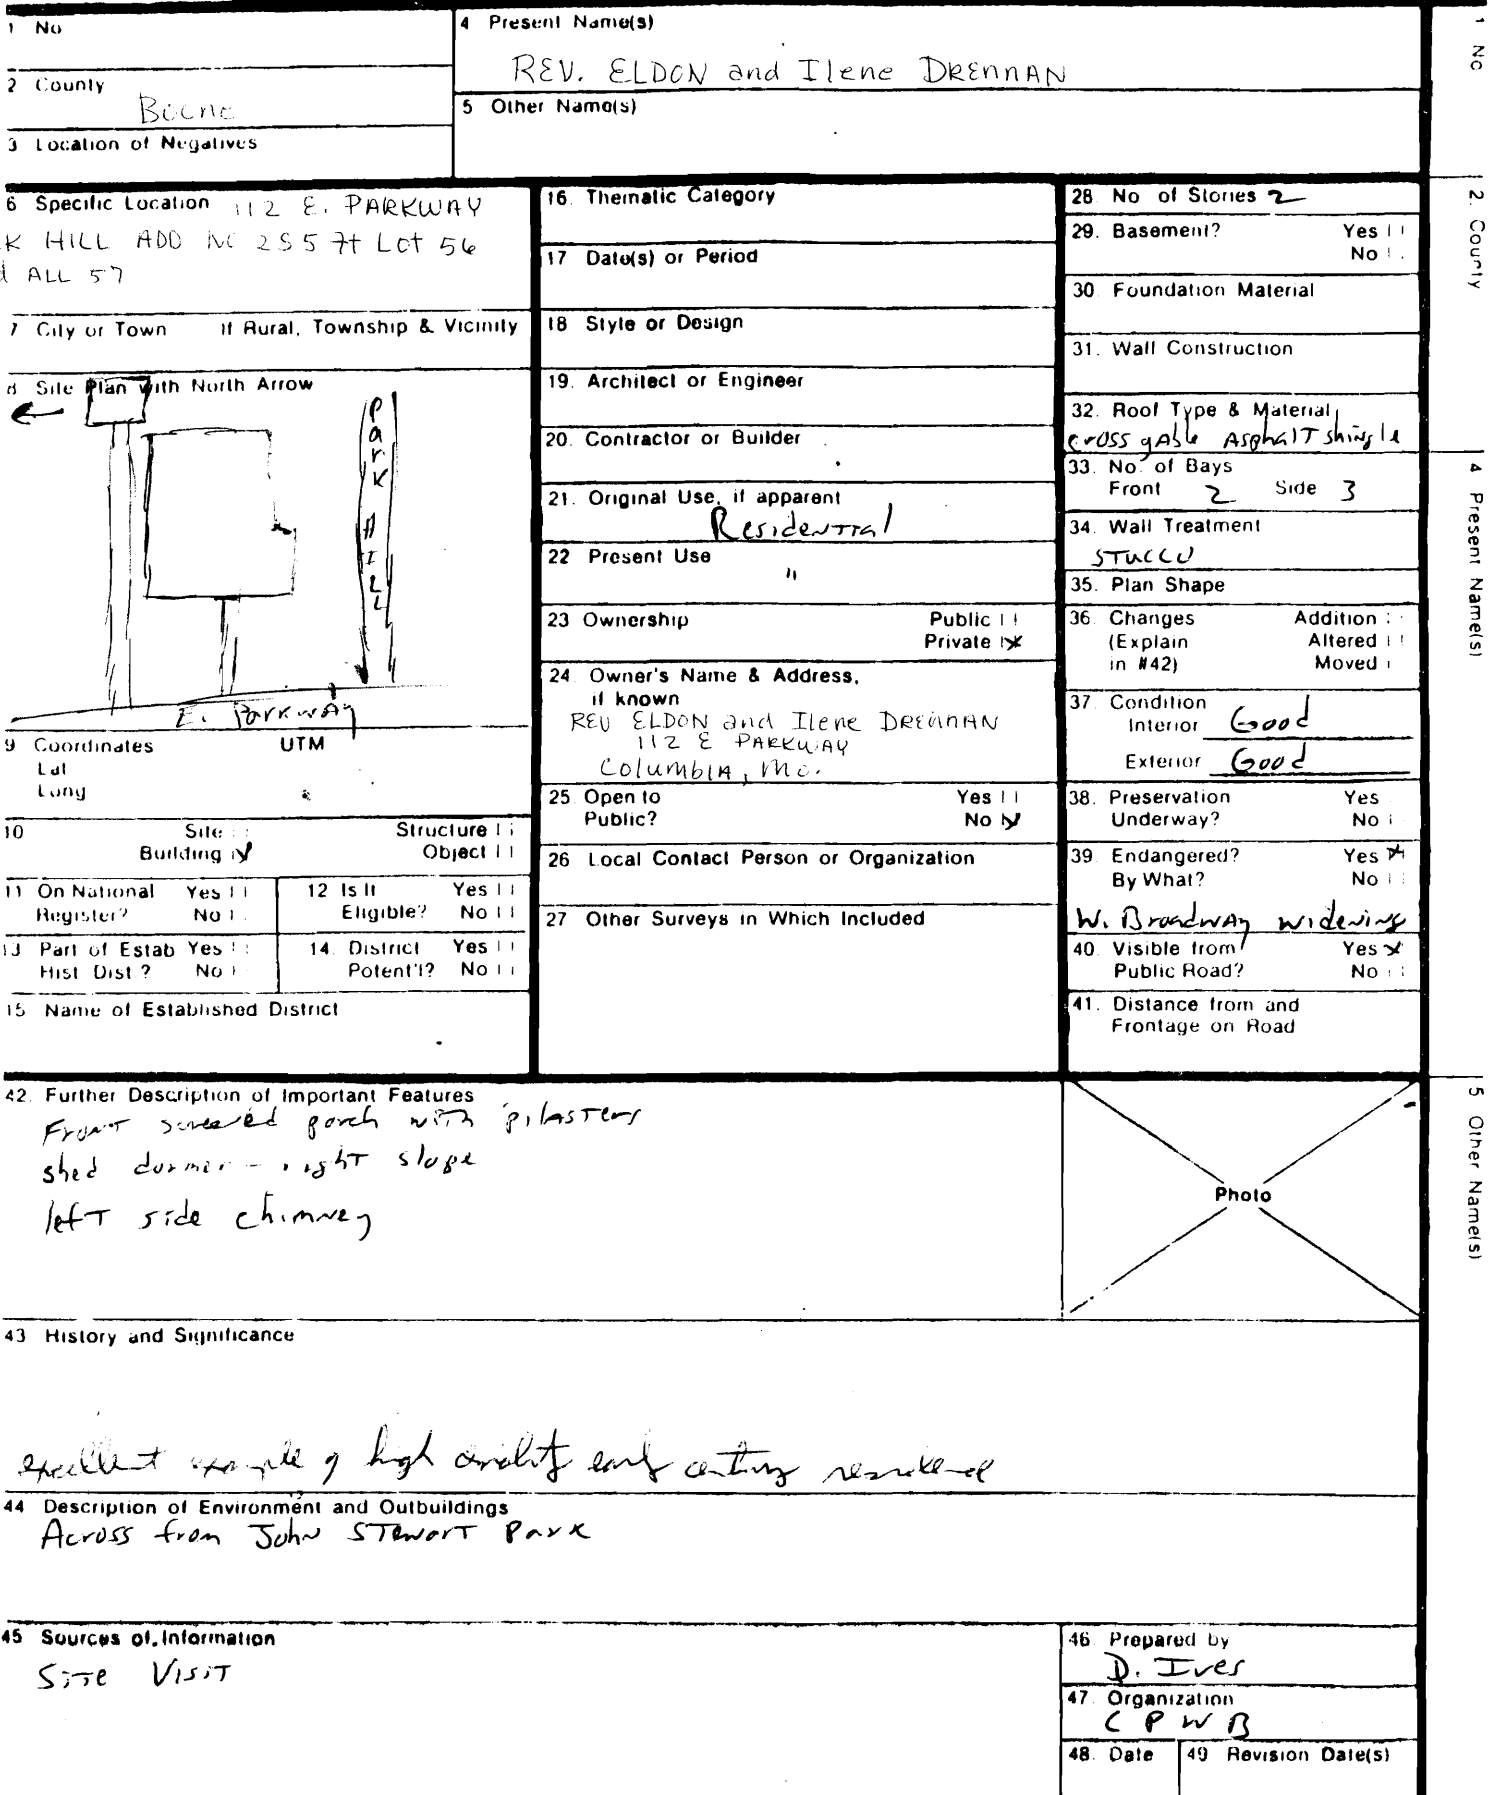 1 No
4 Present Name(s)
REV. ELDON and Ilene DRENNAN
2 County
Boone
5 Other Name(s)
3 Location of Negatives
6 Specific Location 112 E. PARKWAY
K HILL ADD NC 2S5 7t Lot 56
ALL 57
7 City or Town If Rural, Township & Vicinity
8 Site Plan with North Arrow
PARK HILL
E. Parkway
9 Coordinates UTM
Lat
Long
10 Site
Structure
Building
Object
11 On National Register? Yes No
12 Is It Eligible? Yes No
13 Part of Estab Hist Dist.? Yes No
14. District Potent'l? Yes No
15 Name of Established District
16. Thematic Category
17 Date(s) or Period
18 Style or Design
19. Architect or Engineer
20. Contractor or Builder
21. Original Use, if apparent
Residential
22 Present Use
"
23 Ownership Public
Private
24. Owner's Name & Address,
if known
REV ELDON and Ilene DRENNAN
112 E PARKWAY
Columbia, Mo.
25. Open to Yes
Public? No
26 Local Contact Person or Organization
27 Other Surveys in Which Included
28. No of Stories 2
29. Basement? Yes
No
30. Foundation Material
31. Wall Construction
32. Roof Type & Material
cross gable Asphalt shingle
33. No. of Bays
Front 2 Side 3
34. Wall Treatment
Stucco
35. Plan Shape
36. Changes Addition
(Explain Altered
in #42) Moved
37. Condition
Interior Good
Exterior Good
38. Preservation Yes
Underway? No
39. Endangered? Yes
By What? No
W. Broadway widening
40. Visible from Yes
Public Road? No
41. Distance from and
Frontage on Road
42. Further Description of Important Features
Front screened porch with pilasters
shed dormer - right slope
left side chimney
Photo
43 History and Significance
excellent example of high quality early century residence
44 Description of Environment and Outbuildings
Across from John Stewart Park
45 Sources of Information
Site Visit
46. Prepared by
D. Ives
47. Organization
CPWB
48. Date
49 Revision Date(s)
1 No
2. County
4 Present Name(s)
5 Other Name(s)